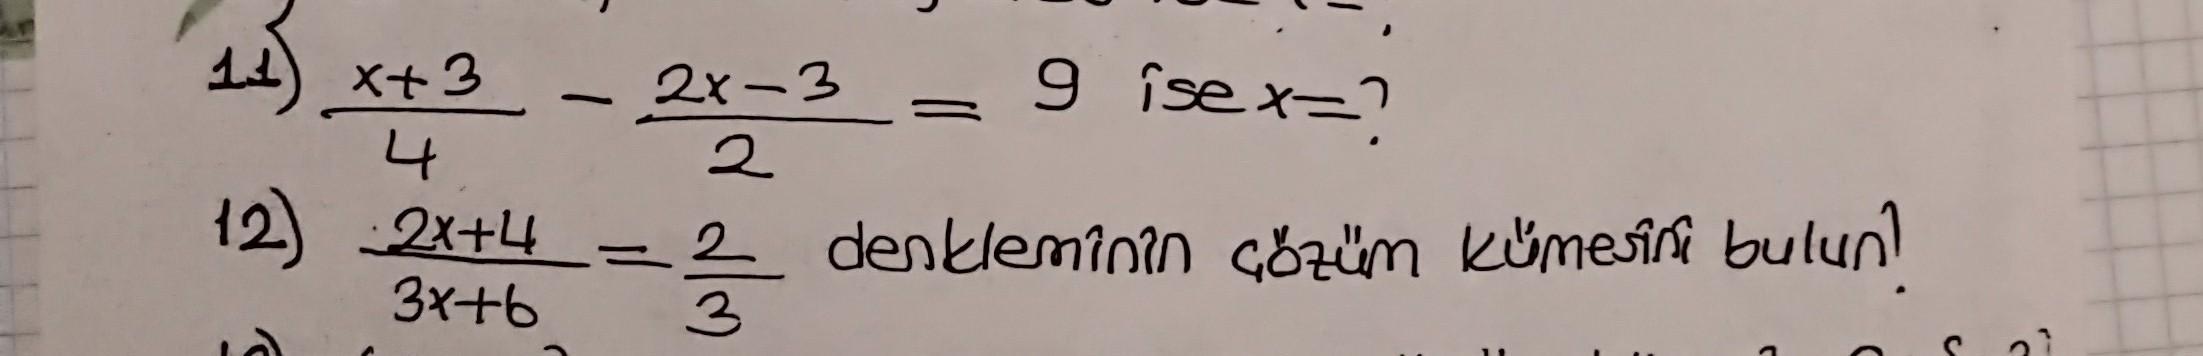 11) x+3/4 - 2x-3/2 = 9 ise x=?
12) 2x+4/3x+6 = 2/3 denkleminin çözüm kümesini bulun!